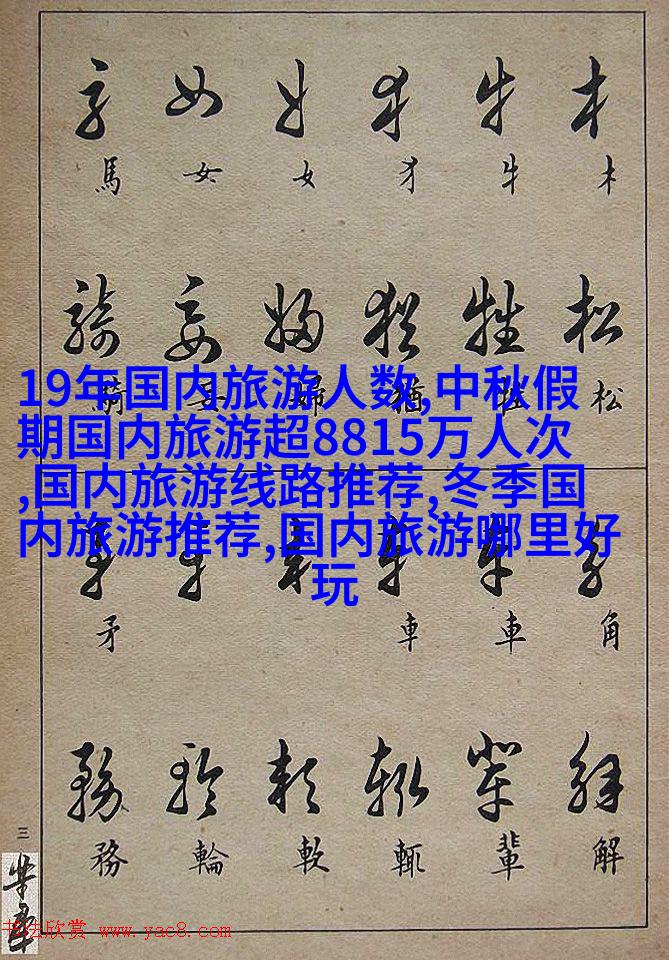 木 牛 犭 女 女 馬
松 牲 猶 婦 妄 騎
19年国内旅游人数,中秋假
期国内旅游超8815万人次
,国内旅游线路推荐,冬季国
内旅游推荐,国内旅游哪里好
玩
角 車 車 矛
解 輩 輒 軟 輪 務
三
书法欣赏 www.yac8.com